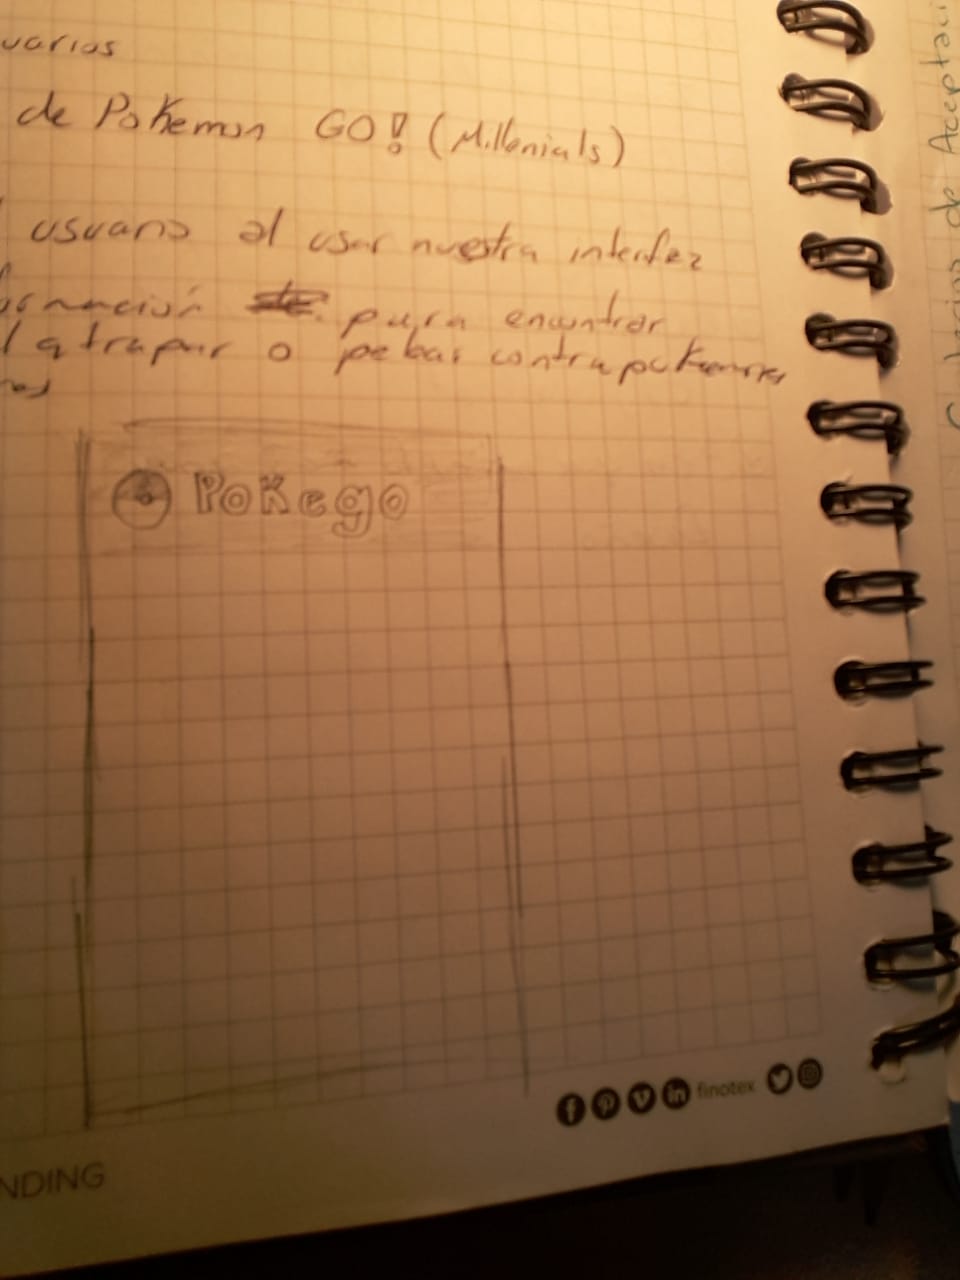 uarios
de Pokemon GO! (Millenials)
usuario al usar nuestra interfaz
para encontrar
atrapar o pelear contra pokemones
Pokego
finotex
NDING
de Aceptaci